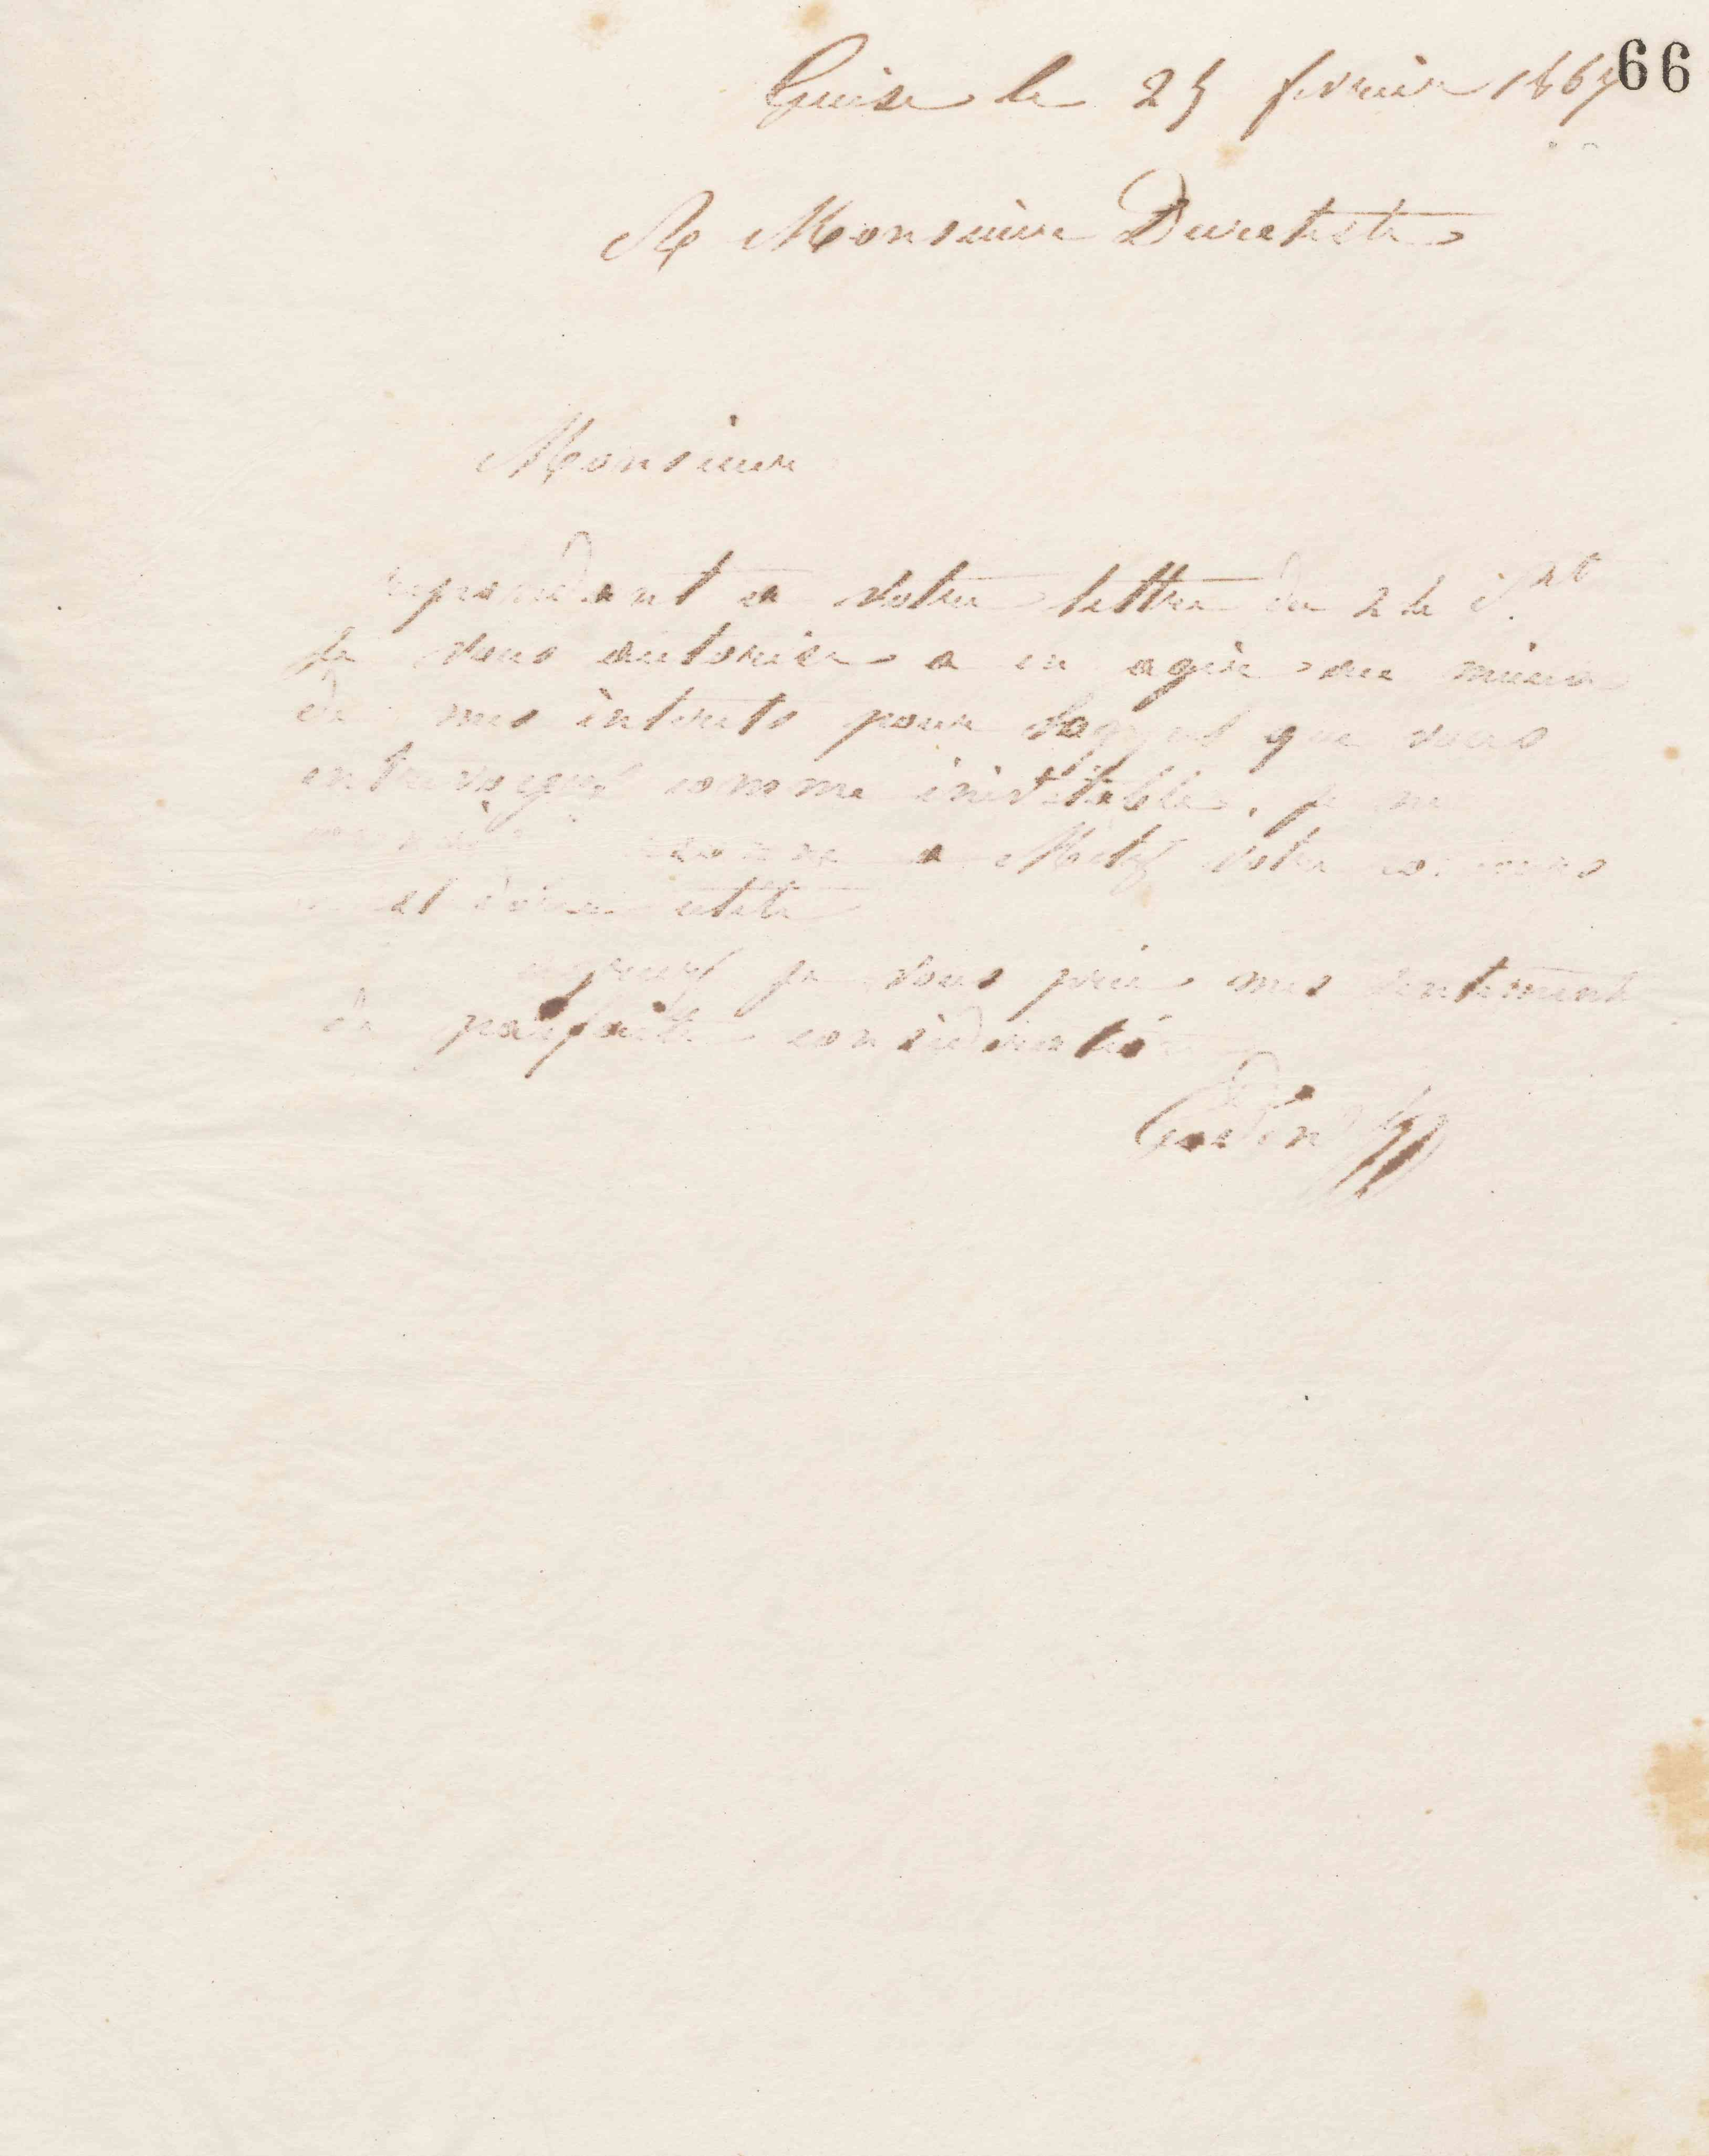 66
Guise le 25 février 1867
A Monsieur Duréteste
Monsieur
repondant a votre lettre du 24 Ct
je vous autorise a en agir au mieux
de mes interets pour que vous
entrevoyez comme inevitable. je ne
a Metz votre
et utile
agreez je vous prie mes sentiments
de parfaite consideration
Godin